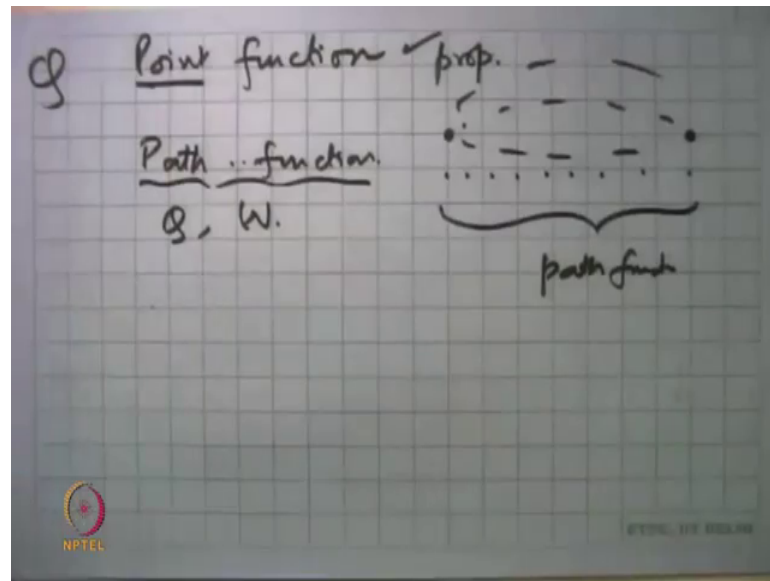 Q Point function ✓ prop.
Path .. function.
Q, W.
path funct
NPTEL
ETSC, IIT DELHI